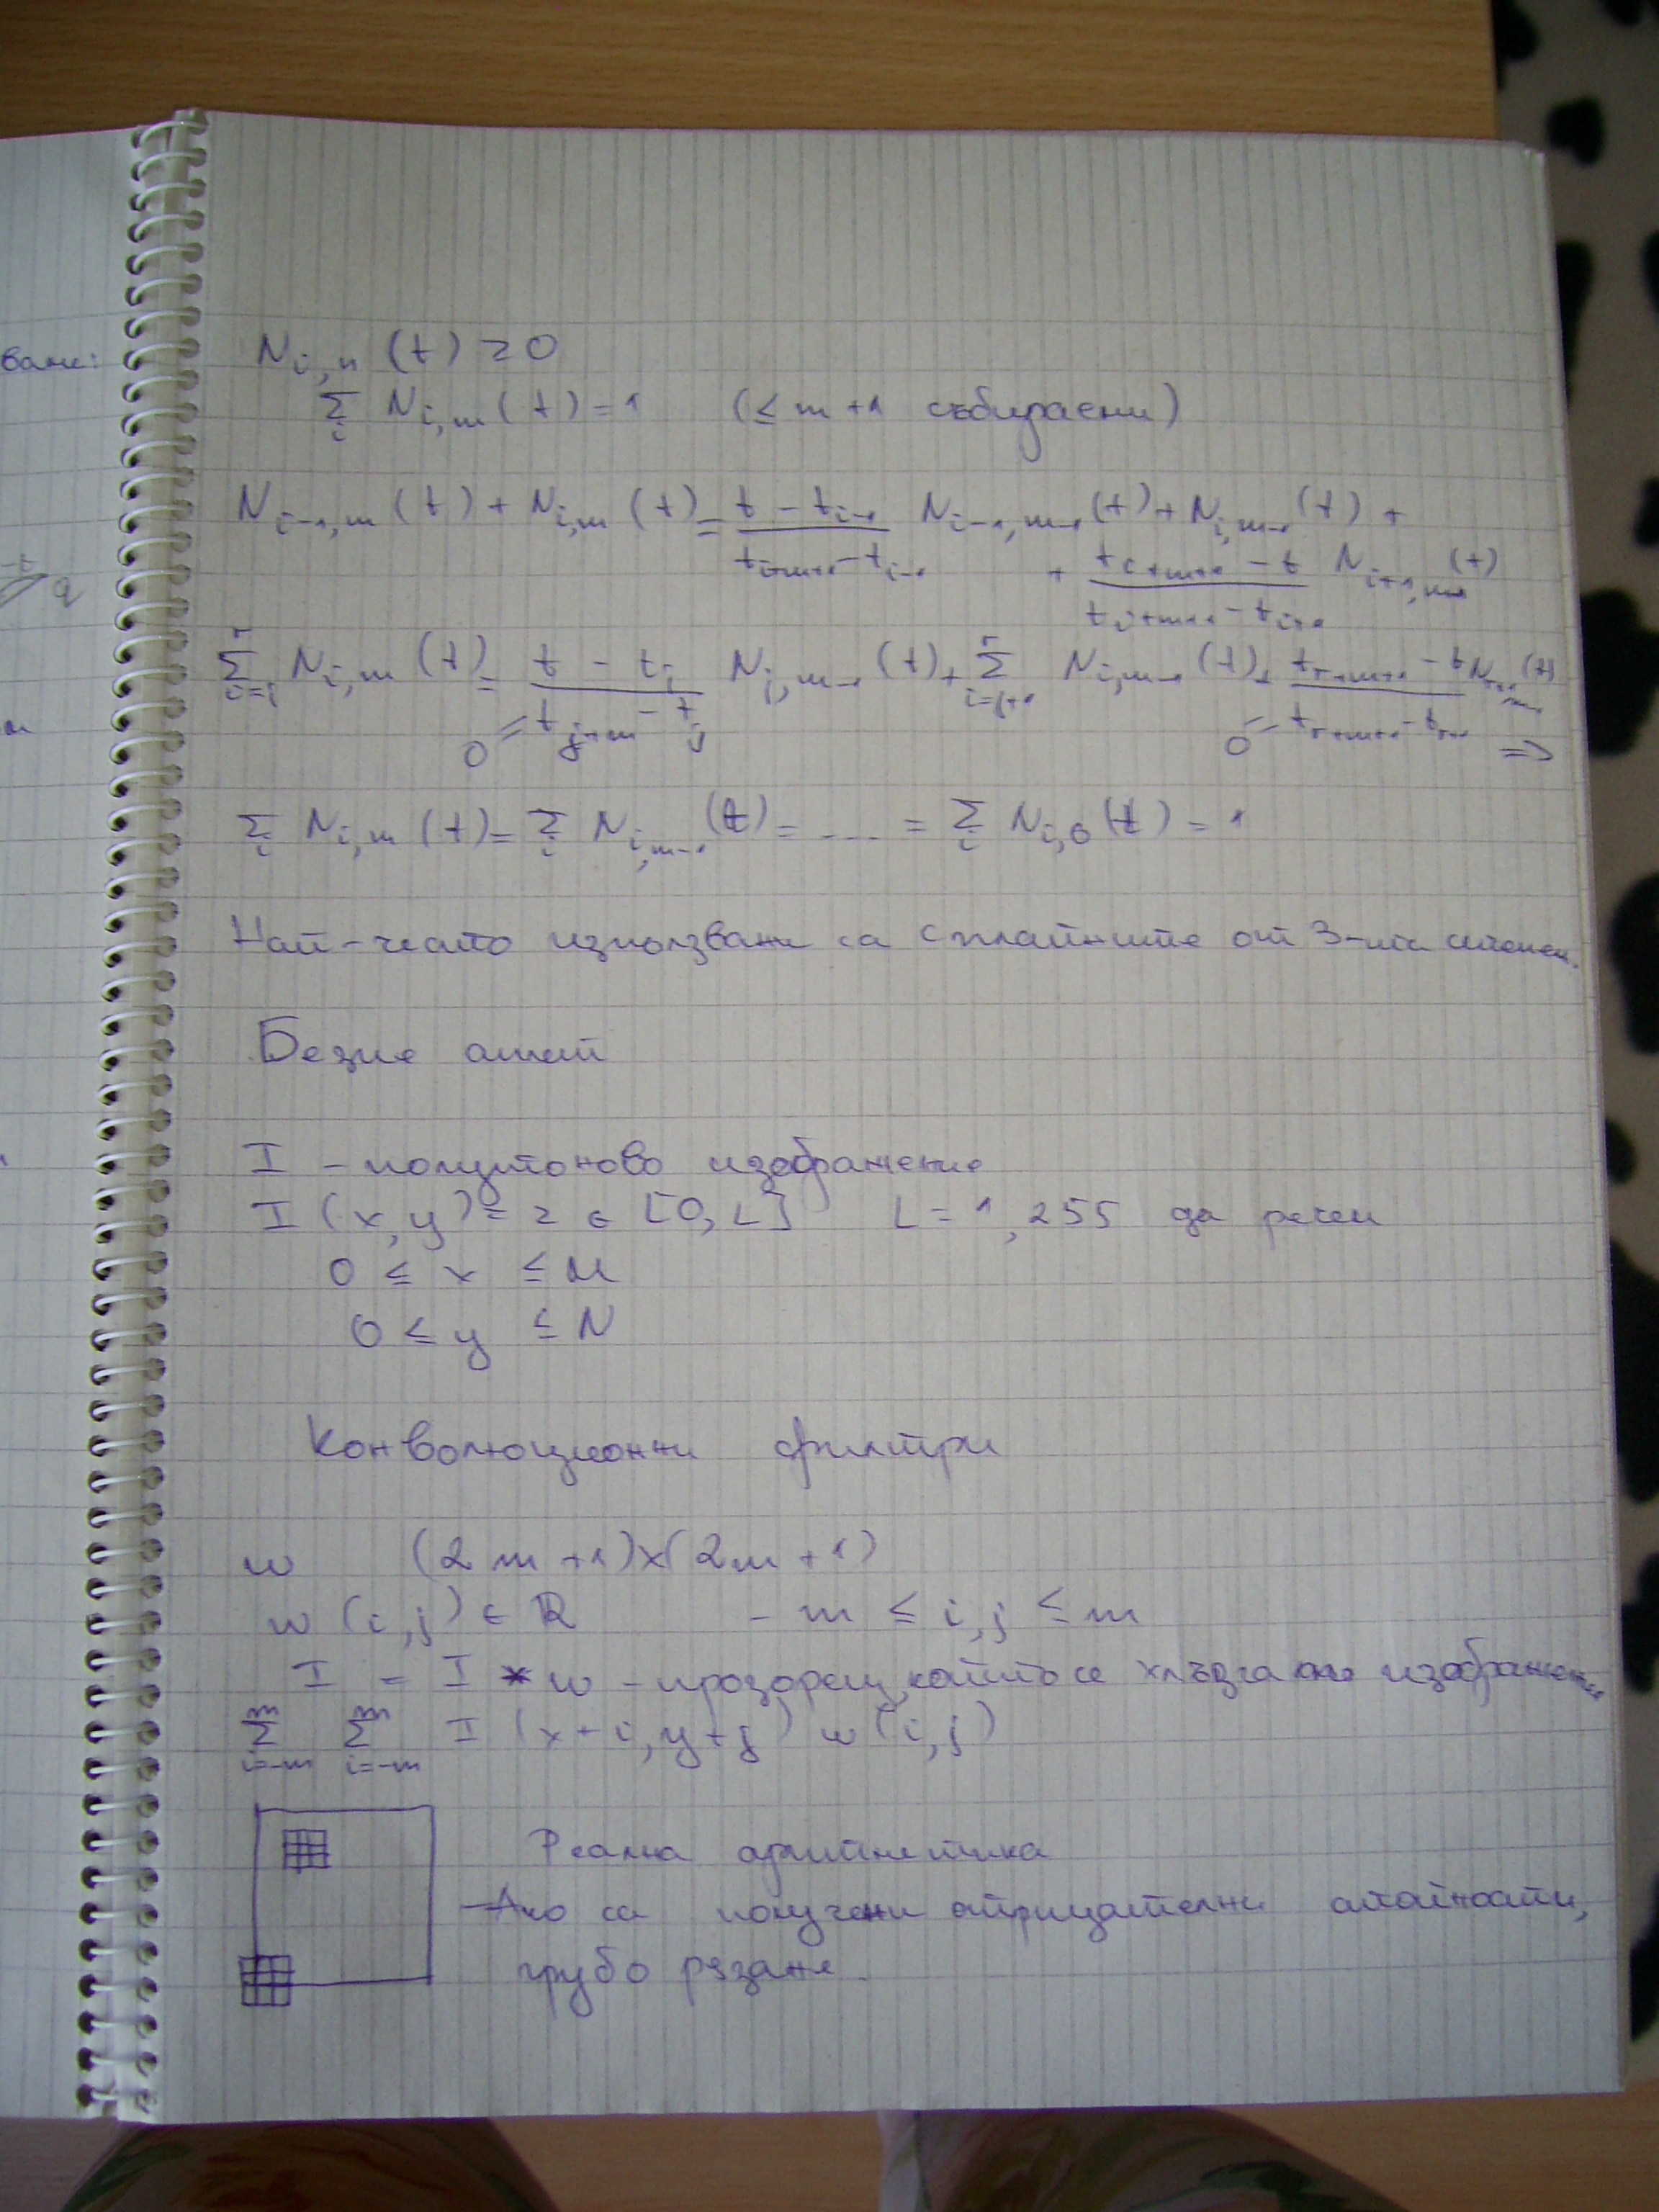 ване:
N_{i,n}(t) ≥ 0
∑_i N_{i,m}(t) = 1 (≤ m+1 събираеми)
N_{i-1,m}(t) + N_{i,m}(t) = \frac{t - t_{i-1}}{t_{i+m-1} - t_{i-1}} N_{i-1,m-1}(t) + N_{i,m-1}(t) +
+ \frac{t_{i+m+1} - t}{t_{i+m+1} - t_{i+1}} N_{i+1,m-1}(t)
∑_{i=j}^{r} N_{i,m}(t) = \frac{t - t_j}{t_{j+m} - t_j} N_{j,m-1}(t) + ∑_{i=j+1}^{r} N_{i,m-1}(t) + \frac{t_{r+m+1} - t}{t_{r+m+1} - t_{r+1}} N_{r+1,m-1}(t)
0 = 0 = ⇒
∑_i N_{i,m}(t) = ∑_i N_{i,m-1}(t) = .... = ∑_i N_{i,0}(t) = 1
Най-често използвани са сплайните от 3-та степен.
Безие
I - полутоново изображение
I(x,y) = z ∈ [0, L] L = 1, 255 да речем
0 ≤ x ≤ M
0 ≤ y ≤ N
Конволюционни филтри
w (2m+1)×(2m+1)
w(i,j) ∈ ℝ -m ≤ i,j ≤ m
I = I * w - прозорец, който се хлъзга по изображение
∑_{i=-m}^{m} ∑_{i=-m}^{m} I(x+i, y+j) w(i,j)
Реална аритметика
-Ако са получени отрицателни стойности,
грубо рязане.